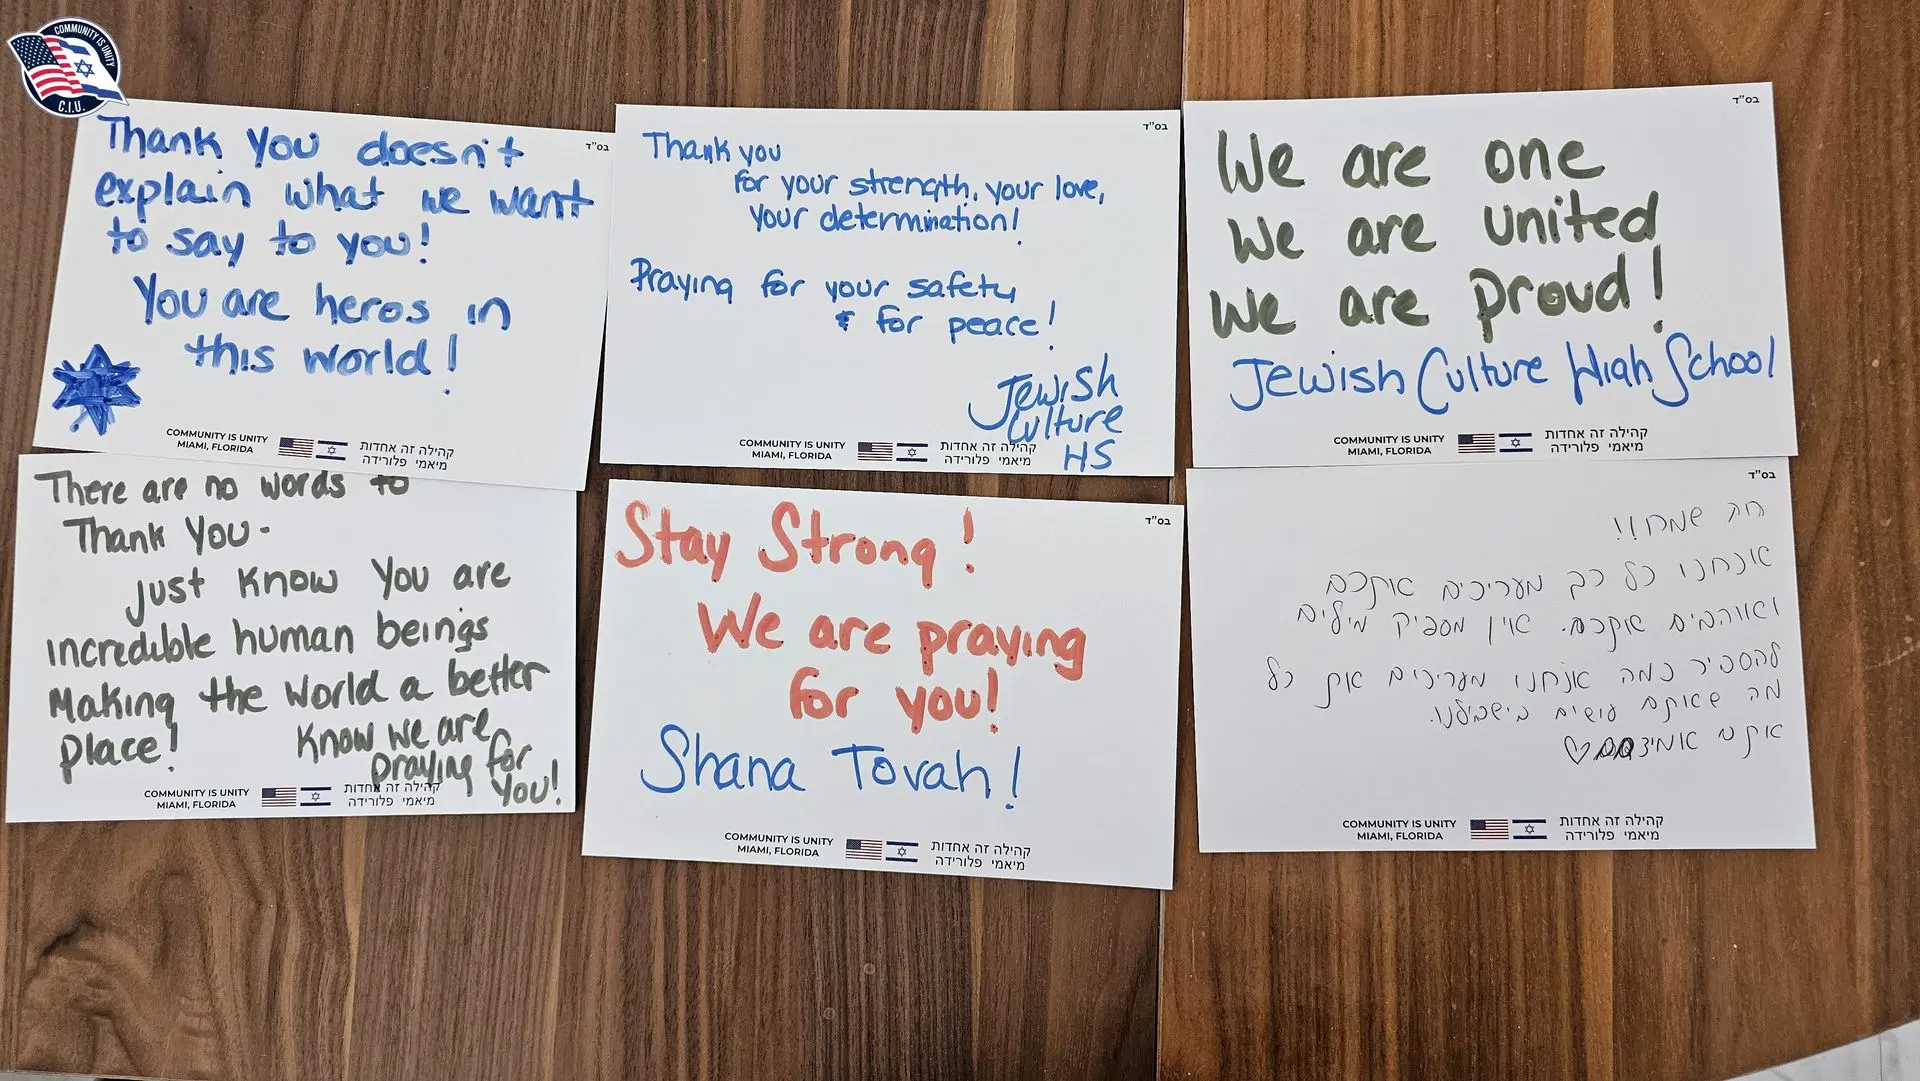 COMMUNITY IS UNITY
C.I.U.
בס"ד
Thank You doesn't
explain what we want
to say to you!
You are heros in
this world!
COMMUNITY IS UNITY
MIAMI, FLORIDA
קהילה זה אחדות
מיאמי פלורידה
בס"ד
Thank you
for your strength, your love,
your determination!
Praying for your safety
& for peace!
Jewish
Culture
HS
COMMUNITY IS UNITY
MIAMI, FLORIDA
קהילה זה אחדות
מיאמי פלורידה
בס"ד
We are one
We are united
We are proud!
Jewish Culture High School
COMMUNITY IS UNITY
MIAMI, FLORIDA
קהילה זה אחדות
מיאמי פלורידה
There are no words to
Thank You-
just know you are
incredible human beings
Making the world a better
place!
Know we are
praying for
you!
COMMUNITY IS UNITY
MIAMI, FLORIDA
קהילה זה אחדות
מיאמי פלורידה
בס"ד
Stay Strong!
We are praying
for you!
Shana Tovah!
COMMUNITY IS UNITY
MIAMI, FLORIDA
קהילה זה אחדות
מיאמי פלורידה
בס"ד
אנחנו כל כך מעריכים אתכם
ואוהבים אתכם. אין מספיק מילים
להסביר כמה אנחנו מעריכים את כל
מה שאתם עושים בישבילנו.
אתם
COMMUNITY IS UNITY
MIAMI, FLORIDA
קהילה זה אחדות
מיאמי פלורידה